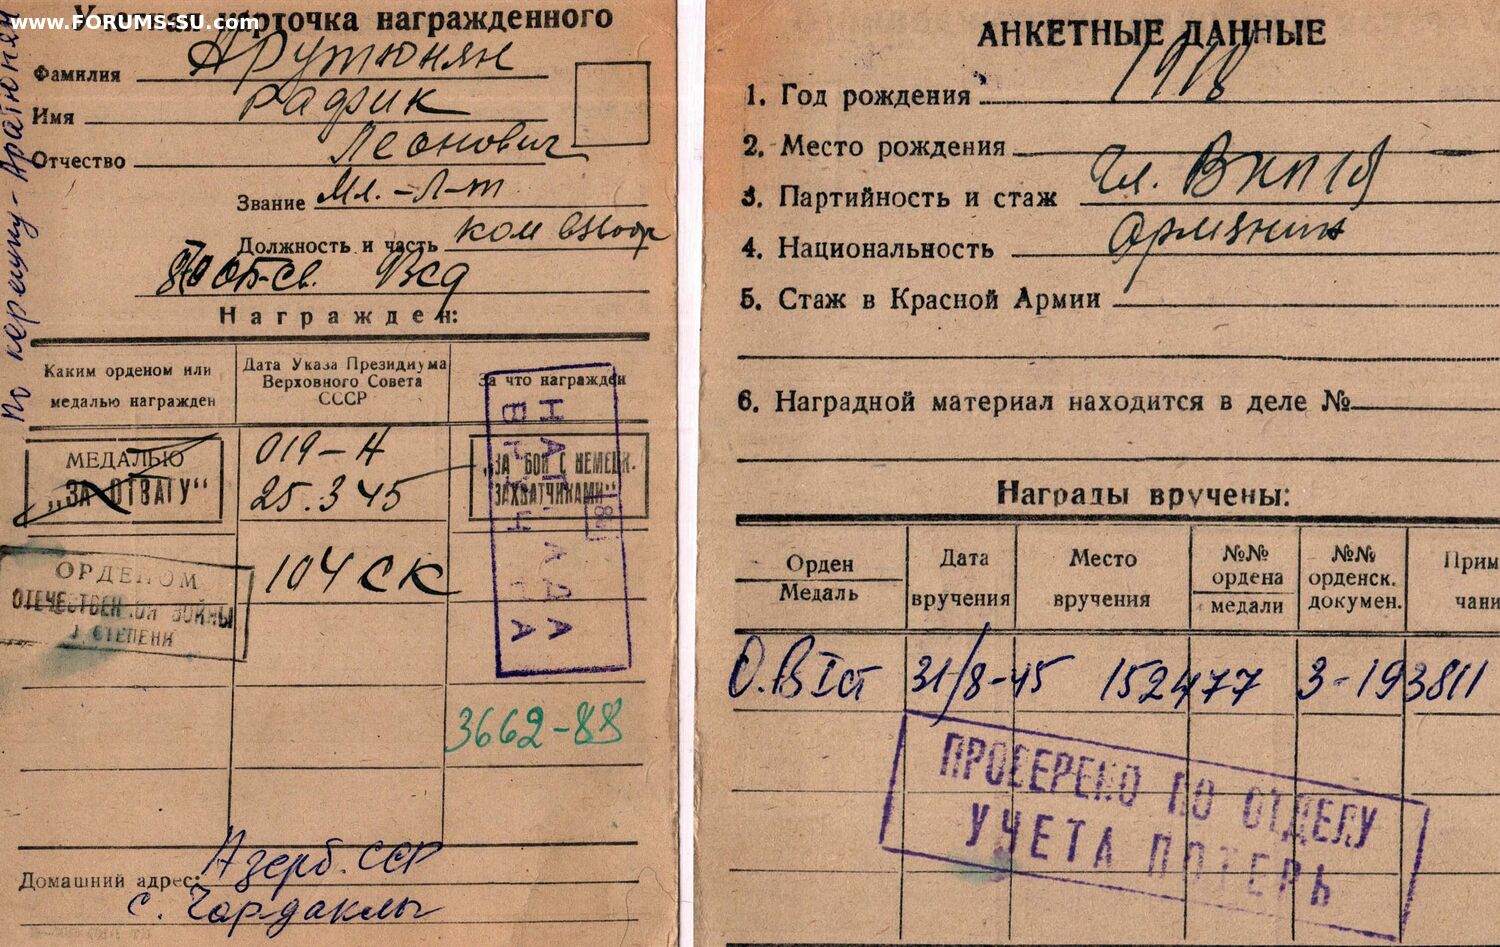 www.FORUMS-SU.com
Учетная карточка награжденного
Фамилия Арутюнян
Имя Рафик
Отчество Леонович
Звание Мл.-Л-т
Должность и часть ком взвода
от-св.
Награжден:
Каким орденом или медалью награжден
Дата Указа Президиума Верховного Совета СССР
За что награжден
МЕДАЛЬЮ
„ЗА ОТВАГУ“
019-Н
25.3 45
„ЗА БОИ С НЕМЕЦК.
ЗАХВАТЧИКАМИ“
НАГРАДА
ВРУЧЕНА
ОРДЕНОМ
ОТЕЧЕСТВЕННОЙ ВОЙНЫ
I СТЕПЕНИ
104 СК
3662-88
Домашний адрес: Азерб. ССР
с. Чардаклы
По корешку - Аратюнян
АНКЕТНЫЕ ДАННЫЕ
1. Год рождения 1918
2. Место рождения
3. Партийность и стаж Чл. ВКП(б)
4. Национальность армянин
5. Стаж в Красной Армии
6. Наградной материал находится в деле №
Награды вручены:
Орден
Медаль
Дата вручения
Место вручения
№№ ордена
медали
№№ орденск. докумен.
Прим
чани
О.В I ст 31/8-45 152477 З-193811
ПРОВЕРЕНО ПО ОТДЕЛУ
УЧЕТА ПОТЕРЬ